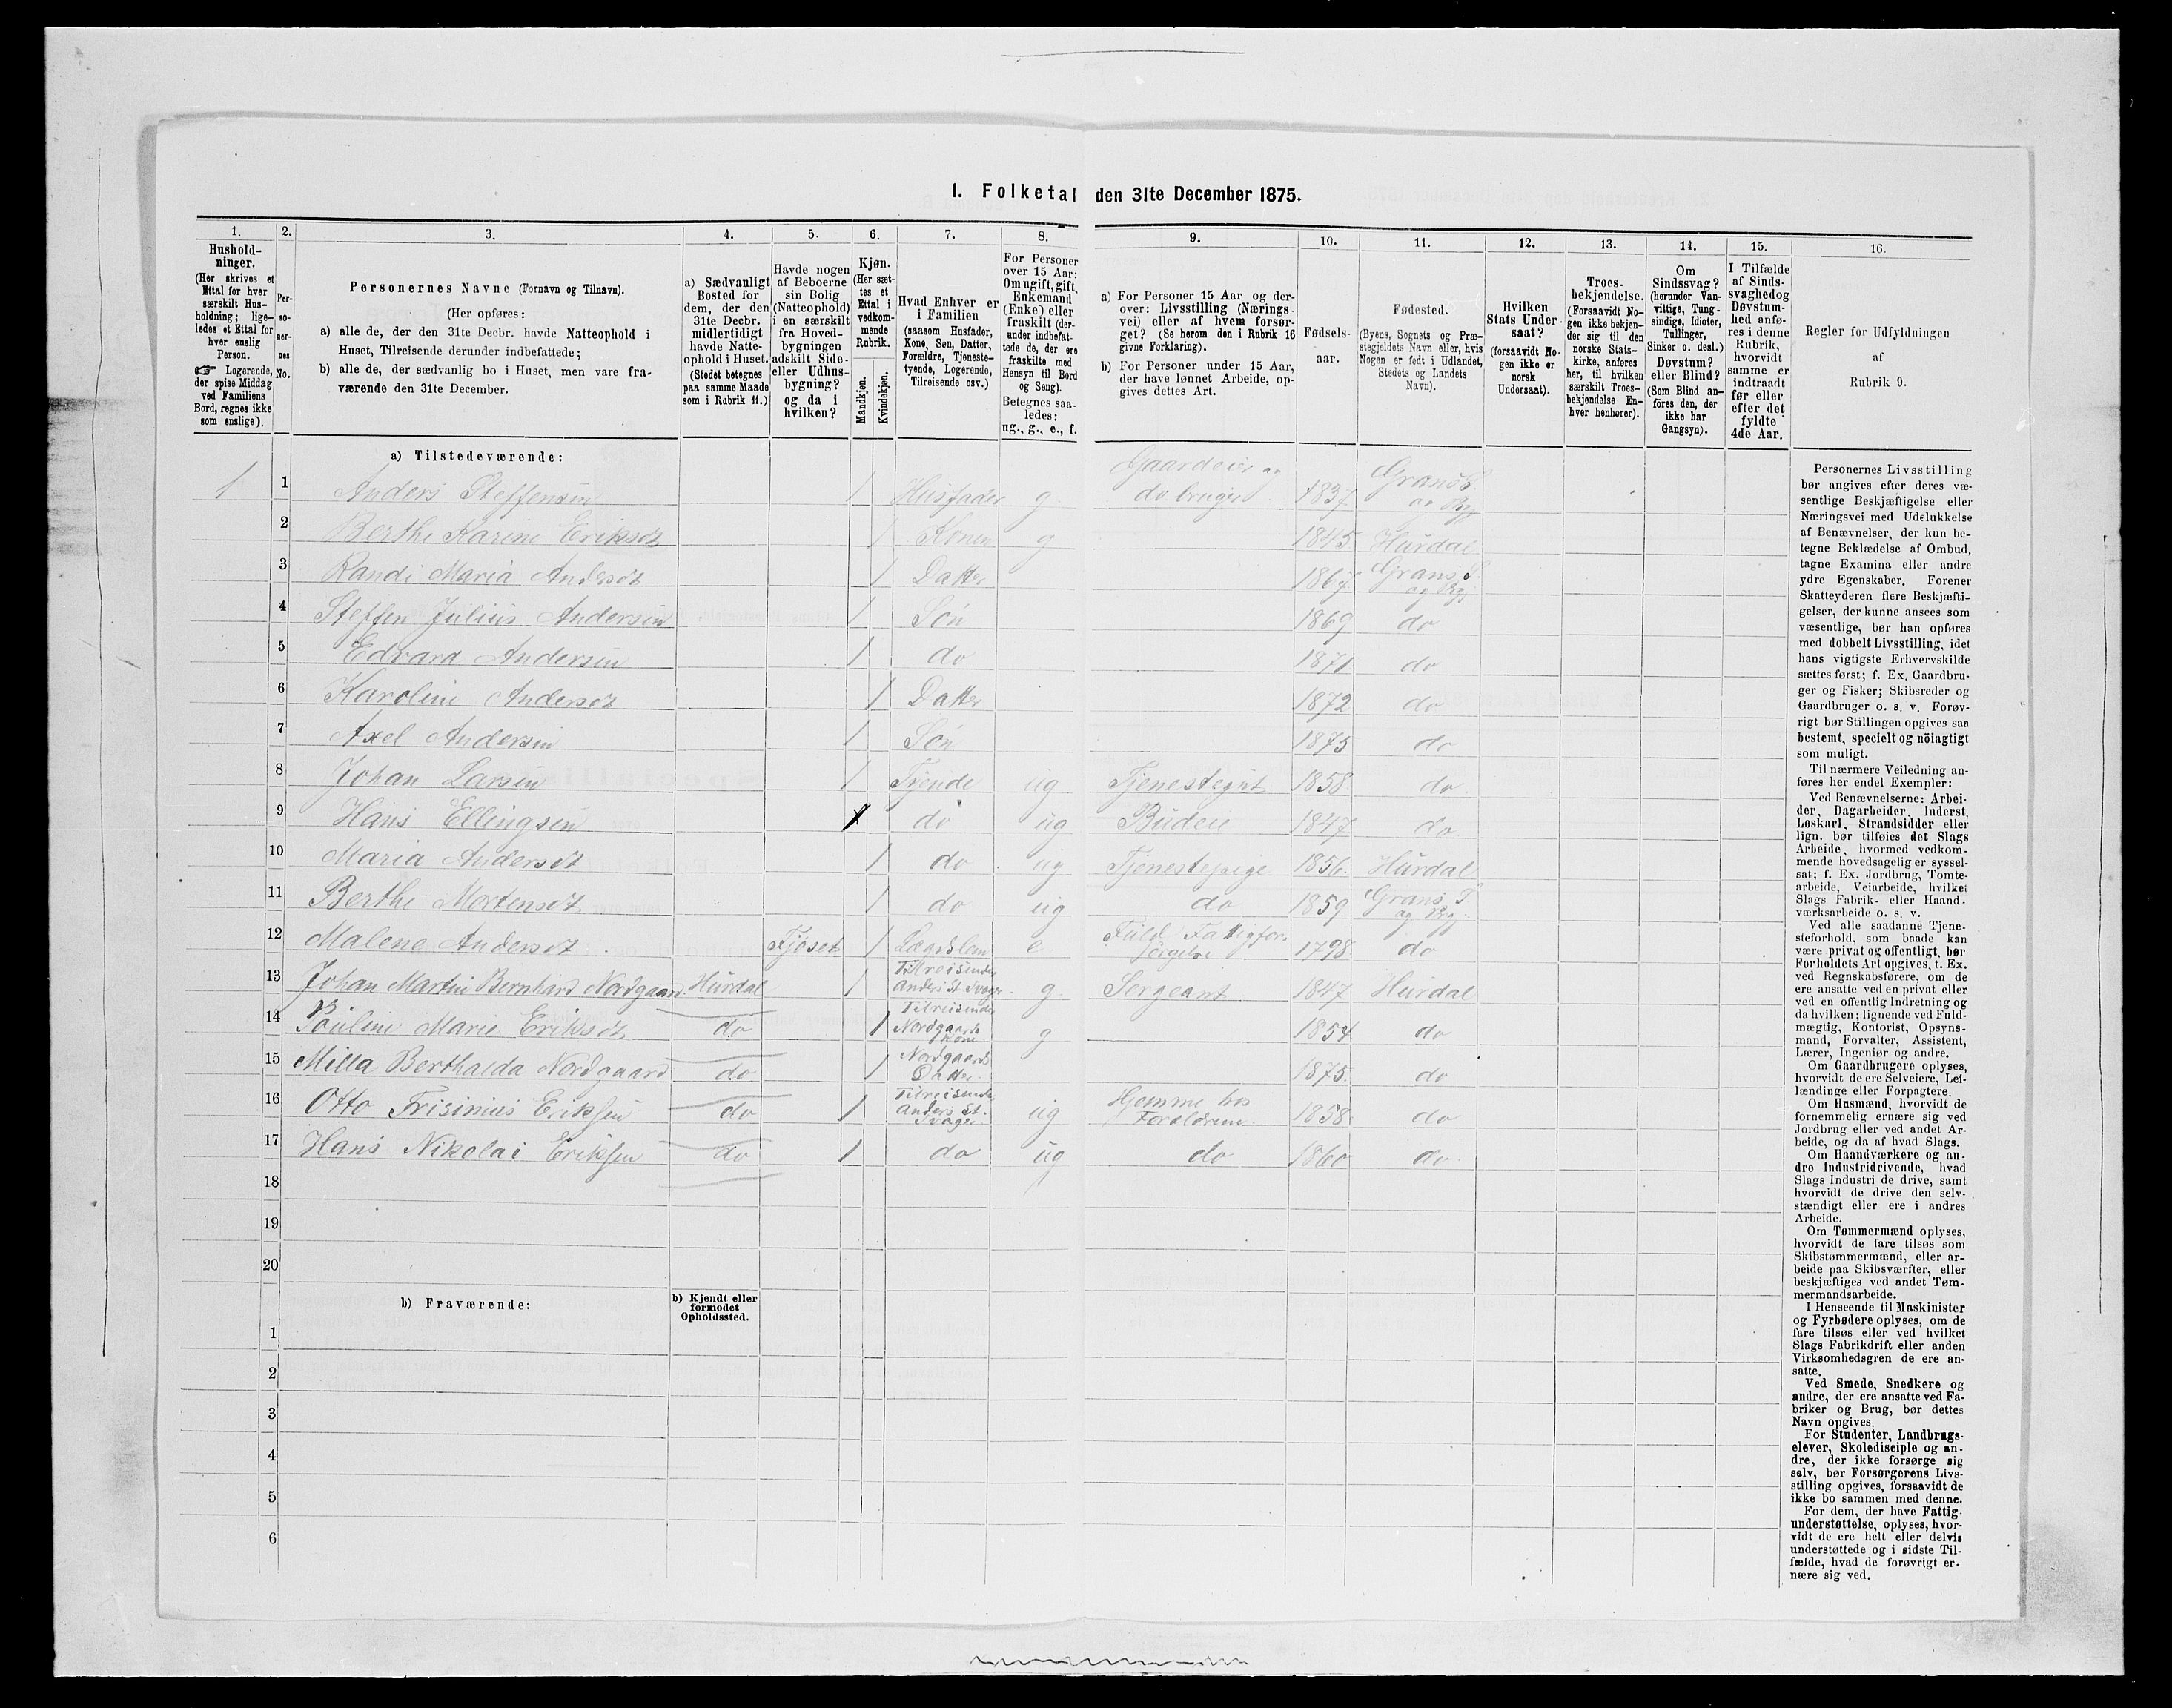 1. Folketal den 31te December 1875.
1.
Hushold-
ninger.
(Her skrives et
Ettal for hver
særskilt Hus-
holdning; lige-
ledes et Ettal for
hver enslig
Person.
☞ Logerende,
der spise Middag
ved Familiens
Bord, regnes ikke
som enslige).
2.
Per-
so-
ner-
nes
No.
3.
Personernes Navne (Fornavn og Tilnavn).
(Her opføres:
a) alle de, der den 31te Decbr. havde Natteophold i
Huset, Tilreisende derunder indbefattede;
b) alle de, der sædvanlig bo i Huset, men vare fra-
værende den 31te December.
4.
a) Sædvanligt
Bosted for
dem, der den
31te Decbr.
midlertidigt
havde Natte-
ophold i Huset.
(Stedet betegnes
paa samme Maade
som i Rubrik 11.)
5.
Havde nogen
af Beboerne
sin Bolig
(Natteophold)
i en særskilt
fra Hoved-
bygningen
adskilt Side-
eller Udhus-
bygning?
og da i
hvilken?
6.
Kjøn.
(Her sæt-
tes et
Ettal i
vedkom-
mende
Rubrik.
Mandkjøn.
Kvindekjøn.
7.
Hvad Enhver er
i Familien
(saasom Husfader,
Kone, Søn, Datter,
Forældre, Tjeneste-
tyende, Logerende,
Tilreisende osv.)
8.
For Personer
over 15 Aar:
Om ugift, gift,
Enkemand
(Enke) eller
fraskilt (der-
under indbefat-
tede de, der ere
fraskilte med
Hensyn til Bord
og Seng).
Betegnes saa-
ledes:
ug., g., e., f.
9.
a) For Personer 15 Aar og der-
over: Livsstilling (Nærings-
vei) eller af hvem forsør-
get? (Se herom den i Rubrik 16
givne Forklaring).
b) For Personer under 15 Aar,
der have lønnet Arbeide, op-
gives dettes Art.
10.
Fødsels-
aar.
11.
Fødested.
(Byens, Sognets og Præ-
stegjeldets Navn eller, hvis
Nogen er født i Udlandet,
Stedets og Landets
Navn).
12.
Hvilken
Stats Under-
saat?
(forsaavidt No-
gen ikke er
norsk
Undersaat).
13.
Troes-
bekjendelse.
(Forsaavidt No-
gen ikke bekjen-
der sig til den
norske Stats-
kirke, anføres
her, til hvilken
særskilt Troes-
bekjendelse En-
hver henhører).
14.
Om
Sindssvag?
(herunder Van-
vittige, Tung-
sindige, Idioter,
Tullinger,
Sinker o. desl.)
Døvstum?
eller Blind?
(Som Blind an-
føres den, der
ikke har
Gangsyn).
15.
I Tilfælde
af Sinds-
svaghed og
Døvstum-
hed anfø-
res i denne
Rubrik,
hvorvidt
samme er
indtraadt
før eller
efter det
fyldte
4de Aar.
16.
Regler for Udfyldningen
af
Rubrik 9.
a) Tilstedeværende:
1 1 Anders Steffensen 1 Husfader g. Gaardeier og do bruger 1837. Grans S. og Prg
2 Berthe Karine Eriksdt 1 Konen g 1845 Hurdal
3 Randi Maria Andersdt 1 Datter 1867. Grans S. og Prg
4 Steffen Julius Andersen 1 Søn 1869 do
5 Edvard Andersen 1 do 1871 do
6 Karoline Andersdt 1 Datter 1872 do
7 Axel Andersen 1 Søn 1875 do
8 Johan Larsen 1 Tjende ug Tjenestegut 1858 do
9 Hans Ellingsen 1 do ug 1847 do
10 Maria Andersdt 1 do ug Tjenestepige 1856. Hurdal
11 Berthe Mortensdt 1 do ug do 1859 Grans S. og Prg.
12 Malene Andersdt Fjøset 1 Lægdslem e Fuld Fattigfor- 1798 do
13 Johan Martin Bernhard Nordgaard Hurdal 1 Tilreisende Anders St Svoger g. Sergeant 1847 Hurdal
14 Pauline Marie Eriksdt do 1 Tilreisende Nordgaards Kone g 1854 do
15 Milla Berthalda Nordgaard do 1 Nordgaards Datter 1875. do
16 Otto Frisinius Eriksen do 1 Tilreisende Anders St. Svoger ug Hjemme hos Forældrene 1858 do
17 Hans Nikolai Eriksen do 1 do ug do 1860 do
18
19
20
b) Fraværende:
b) Kjendt eller
formodet
Opholdssted.
1
2
3
4
5
6
Personernes Livsstilling
bør angives efter deres væ-
sentlige Beskjæftigelse eller
Næringsvei med Udelukkelse
af Benævnelser, der kun be-
tegne Beklædelse af Ombud,
tagne Examina eller andre
ydre Egenskaber. Forener
Skatteyderen flere Beskjæfti-
gelser, der kunne ansees som
væsentlige, bør han opføres
med dobbelt Livsstilling, idet
hans vigtigste Erhvervskilde
sættes først; f. Ex. Gaardbru-
ger og Fisker; Skibsreder og
Gaardbruger o. s. v. Forøv-
rigt bør Stillingen opgives saa
bestemt, specielt og nöiagtigt
som muligt.
Til nærmere Veiledning an-
føres her endel Exempler:
Ved Benævnelserne: Arbei-
der, Dagarbeider, Inderst,
Løskarl, Strandsidder eller
lign. bør tilføies det Slags
Arbeide, hvormed vedkom-
mende hovedsagelig er syssel-
sat; f. Ex. Jordbrug, Tomte-
arbeide, Veiarbeide, hvilket
Slags Fabrik- eller Haand-
værksarbeide o. s. v.
Ved alle saadanne Tjene-
steforhold, som baade kan
være privat og offentligt, bør
Forholdets Art opgives, t. Ex.
ved Regnskabsførere, om de
ere ansatte ved en privat eller
ved en offentlig Indretning og
da hvilken; lignende ved Fuld-
mægtig, Kontorist, Opsyns-
mand, Forvalter, Assistent,
Lærer, Ingeniør og andre.
Om Gaardbrugere oplyses,
hvorvidt de ere Selveiere, Lei-
lændinge eller Forpagtere.
Om Husmænd, hvorvidt de
fornemmelig ernære sig ved
Jordbrug eller ved andet Ar-
beide, og da af hvad Slags.
Om Haandværkere og an-
dre Industridrivende, hvad
Slags Industri de drive, samt
hvorvidt de drive den selv-
stændigt eller ere i andres
Arbeide.
Om Tømmermænd oplyses,
hvorvidt de fare tilsøs som
Skibstømmermænd, eller ar-
beide paa Skibsværfter, eller
beskjæftiges ved andet Tøm-
mermandsarbeide.
I Henseende til Maskinister
og Fyrbødere oplyses, om de
fare tilsøs eller ved hvilket
Slags Fabrikdrift eller anden
Virksomhedsgren de ere an-
satte.
Ved Smede, Snedkere og
andre, der ere ansatte ved Fa-
briker og Brug, bør dettes
Navn opgives.
For Studenter, Landbrugs-
elever, Skoledisciple og an-
dre, der ikke forsørge sig
selv, bør Forsørgerens Livs-
stilling opgives, forsaavidt de
ikke bo sammen med denne.
For dem, der have Fattig-
understøttelse, oplyses, hvor-
vidt de ere helt eller delvis
understøttede og i sidste Til-
fælde, hvad de forøvrigt er-
nære sig ved.